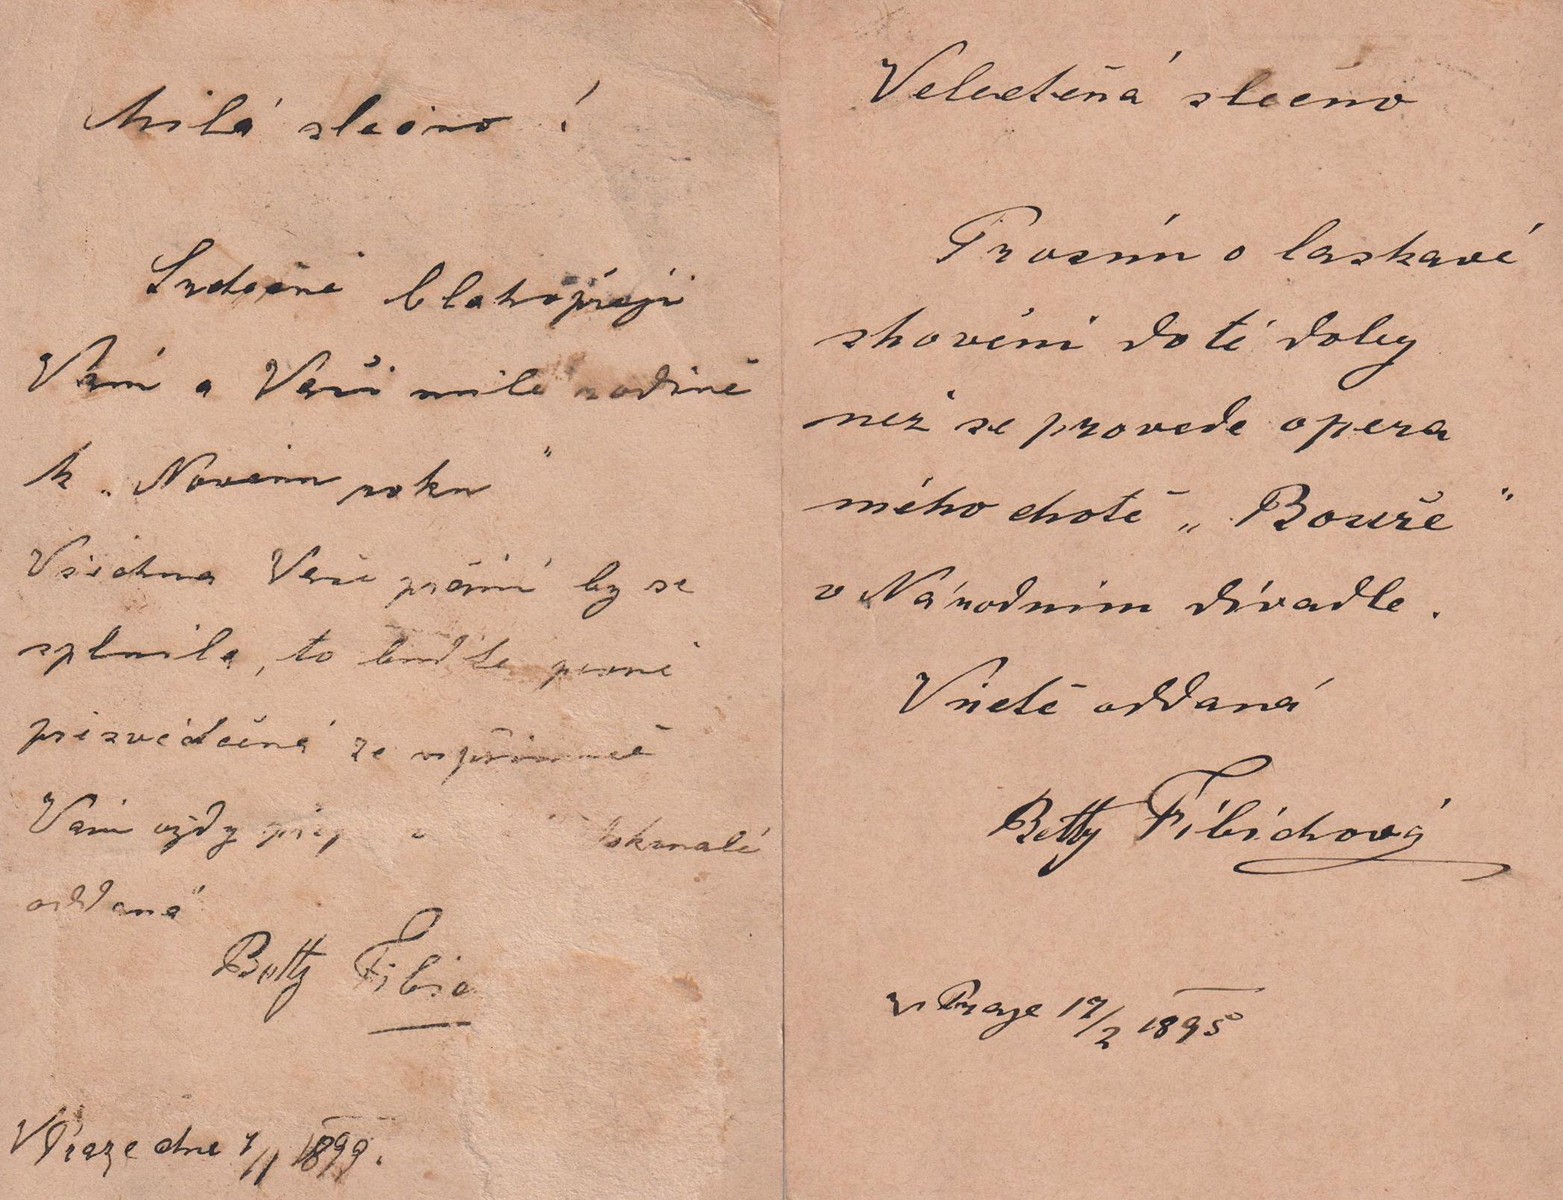 Milá slečno!
Srdečně blahopřeji
Vám a Vaší milé rodině
k „Novém roku"
Všechna Vaše přání by se
splnila, to buďte pevně
přesvědčená že upřímně
Vám vždy
oddaná
Betty Fibic
V Praze dne 1/1 1899.
Velectěná slečno
Prosím o laskavé
shovění do té doby
než se provede opera
mého chotě „Bouře"
v Národním divadle.
V úctě oddaná
Betty Fibichová
V Praze 17/2 1895